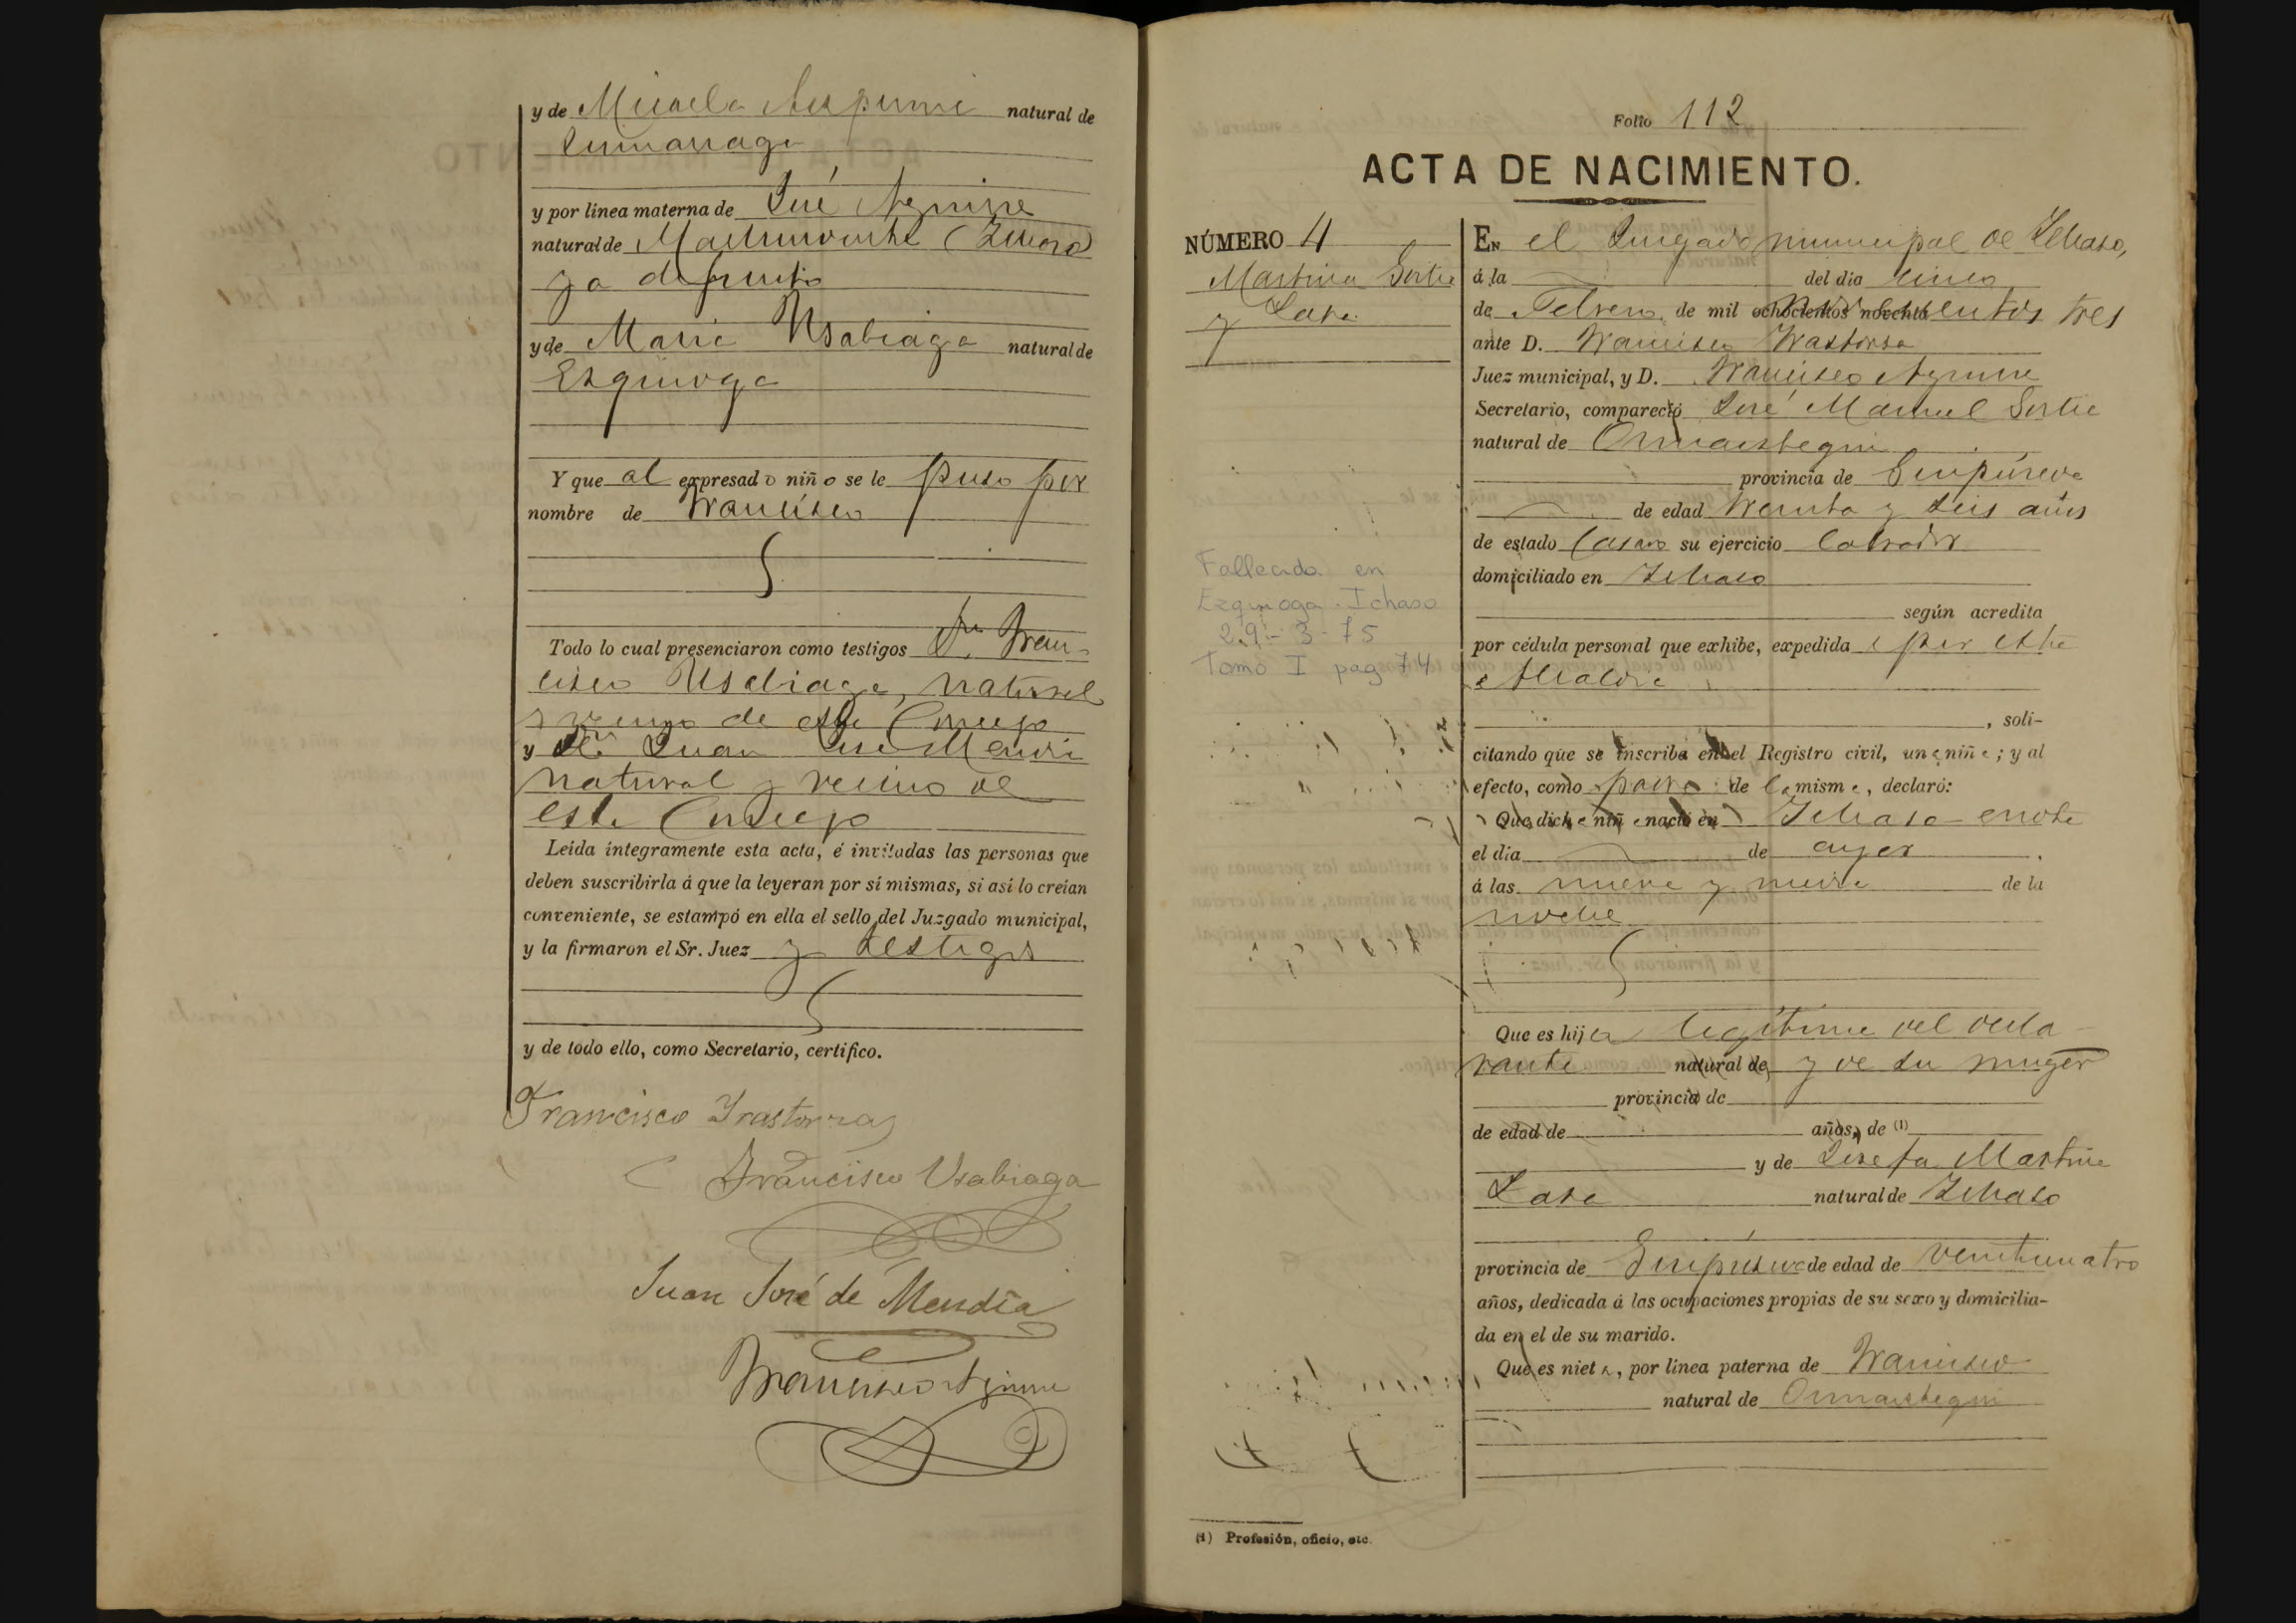 y de Micaela Aizpurua natural de
Zumarraga
y por linea materna de José Aguirre
natural de (Ichaso)
ya difunto
y de Maria Usabiaga natural de
Ezquioga
Y que al expresado niño se le puso por
nombre de Francisco
Todo lo cual presenciaron como testigos Dn Fran-
cisco Usabiaga, natural
y vecino de este Concejo
y Dn Juan José Mendia
natural y vecino de
este Concejo
Leída íntegramente esta acta, é invitadas las personas que
deben suscribirla á que la leyeran por sí mismas, si así lo creían
conveniente, se estampó en ella el sello del Juzgado municipal,
y la firmaron el Sr. Juez y testigos
y de todo ello, como Secretario, certifico.
Francisco Irastorza
Francisco Usabiaga
Juan José de Mendia
Francisco Aguirre
Folio 112
ACTA DE NACIMIENTO.
NÚMERO 4
Martina Gorti
y Lasa
Fallecida en
Ezquioga-Ichaso
29-3-75
Tomo I pag 74
En el Juzgado municipal de Ichaso,
á la del día cinco
de Febrero de mil ochocientos noventa novecientos tres
ante D. Francisco Irastorza
Juez municipal, y D. Francisco Aguirre
Secretario, compareció José Manuel Gorti
natural de Ormaiztegui
provincia de Guipúzcoa
de edad treinta y seis años
de estado casado su ejercicio labrador
domiciliado en Ichaso
según acredita
por cédula personal que exhibe, expedida por esta
Alcaldia
, soli-
citando que se inscriba en el Registro civil, una niña; y al
efecto, como padre de la misma, declaró:
Que dicha niña nació en Ichaso
el día de ayer
á las nueve y media de la
noche
Que es hija legítima del decla-
rante natural de y de su muger
provincia de
de edad de años, de (1)
y de Josefa Martina
Lasa natural de Ichaso
provincia de Guipúzcoa de edad de veinticuatro
años, dedicada á las ocupaciones propias de su sexo y domicilia-
da en el de su marido.
Que es nieta, por linea paterna de Francisco
natural de Ormaiztegui
(1) Profesión, oficio, etc.